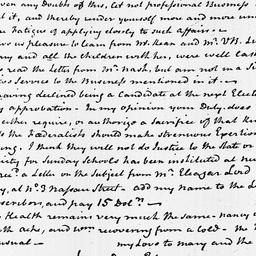 even any Doubts of this, let not professional Business
it, and thereby render yourself more and more un
Fatigue of applying closely to such affairs –
us pleasure to learn from Mr. Kean and Mr. V.R.
ary and all the children with her, were well
read the letter from Mr. Nash, but am not in a
Service to the Business mentioned in it –
having declined being a Candidate at the next Elect
approbation – In my opinion your Duty does
either require, or authorize a Sacrifice of that
the Fœderalists should make strenuous Exertion
ing. I think they will not do Justice to the State or
ity for Sunday Schools has been instituted at
a Letter on the Subject from Mr. Eleazer Lord
y, at No. 3 Nassau Street – add my name to the L
scribers, and pay 15 Dol.rs –
Health remains very much the same – nancy
th Achs, and Wm. recovering from a Cold – the
usual – my Love to mary and the